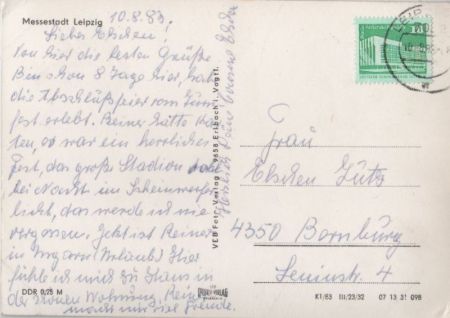 Messestadt Leipzig
10.8.83.
Lieber Elschen!
Von hier die besten Grüße
Bin schon 8 Tage hier, hab
die Abschlußfeier vom Turn
fest erlebt. Reiner hatte Kar
ten, es war ein herrliches
Fest, das große Stadion
bei Nacht im Scheinwerfer
licht, das werde ich nie
vergessen. Jetzt ist Reiner
in Ungarn (Urlaub) Hier
fühle ich mich zu Haus in
der schönen Wohnung,
macht mir viel Freude.
Herzliche
DDR 0,25 M
VEB Foto-Verlag 9658 Erlbach i. Vogtl.
LEIPZIG
10
DDR
Frau
Elschen
4350 Bernburg
Leninstr. 4
K1/83 III/23/32 07 13 31 098